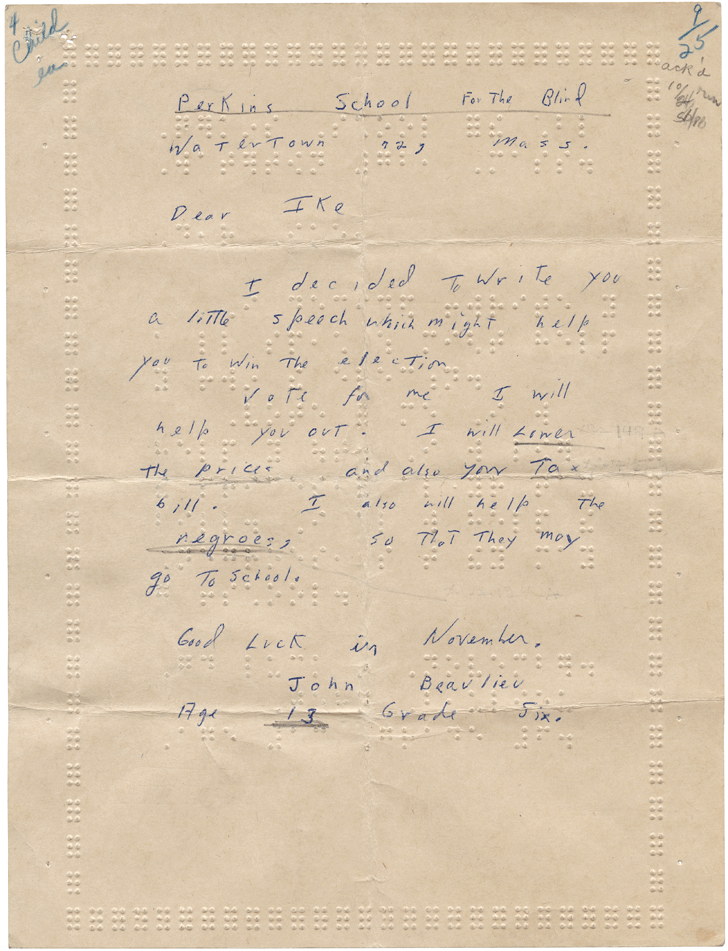 4
Child
en
9/25
ack'd
10/
Perkins School For The Blind
Watertown 72, Mass.
Dear Ike
I decided To write you
a little speech which might help
you to win the election
Vote for me I will
help you out. I will Lower
the prices and also your Tax
bill. I also will help the
negroes, so that they may
go To school.
Good Luck in November.
John Beaulieu
Age 13 Grade Six.